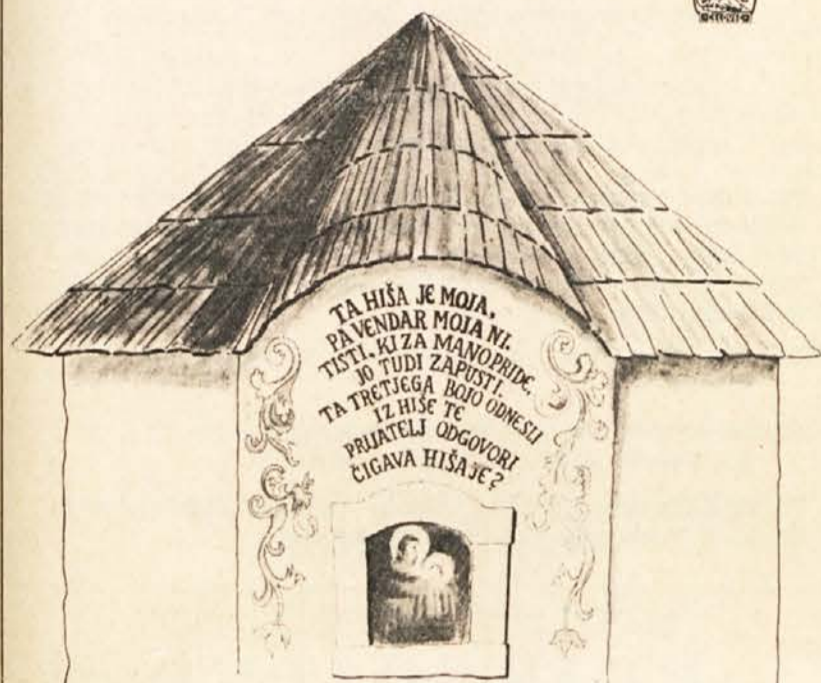 CELOVEC
TA HIŠA JE MOJA,
PA VENDAR MOJA NI.
TISTI, KI ZA MANO PRIDE,
JO TUDI ZAPUSTI.
TA TRETJEGA BOJO ODNESLI
IZ HIŠE TE
PRIJATELJ ODGOVORI
ČIGAVA HIŠA JE?